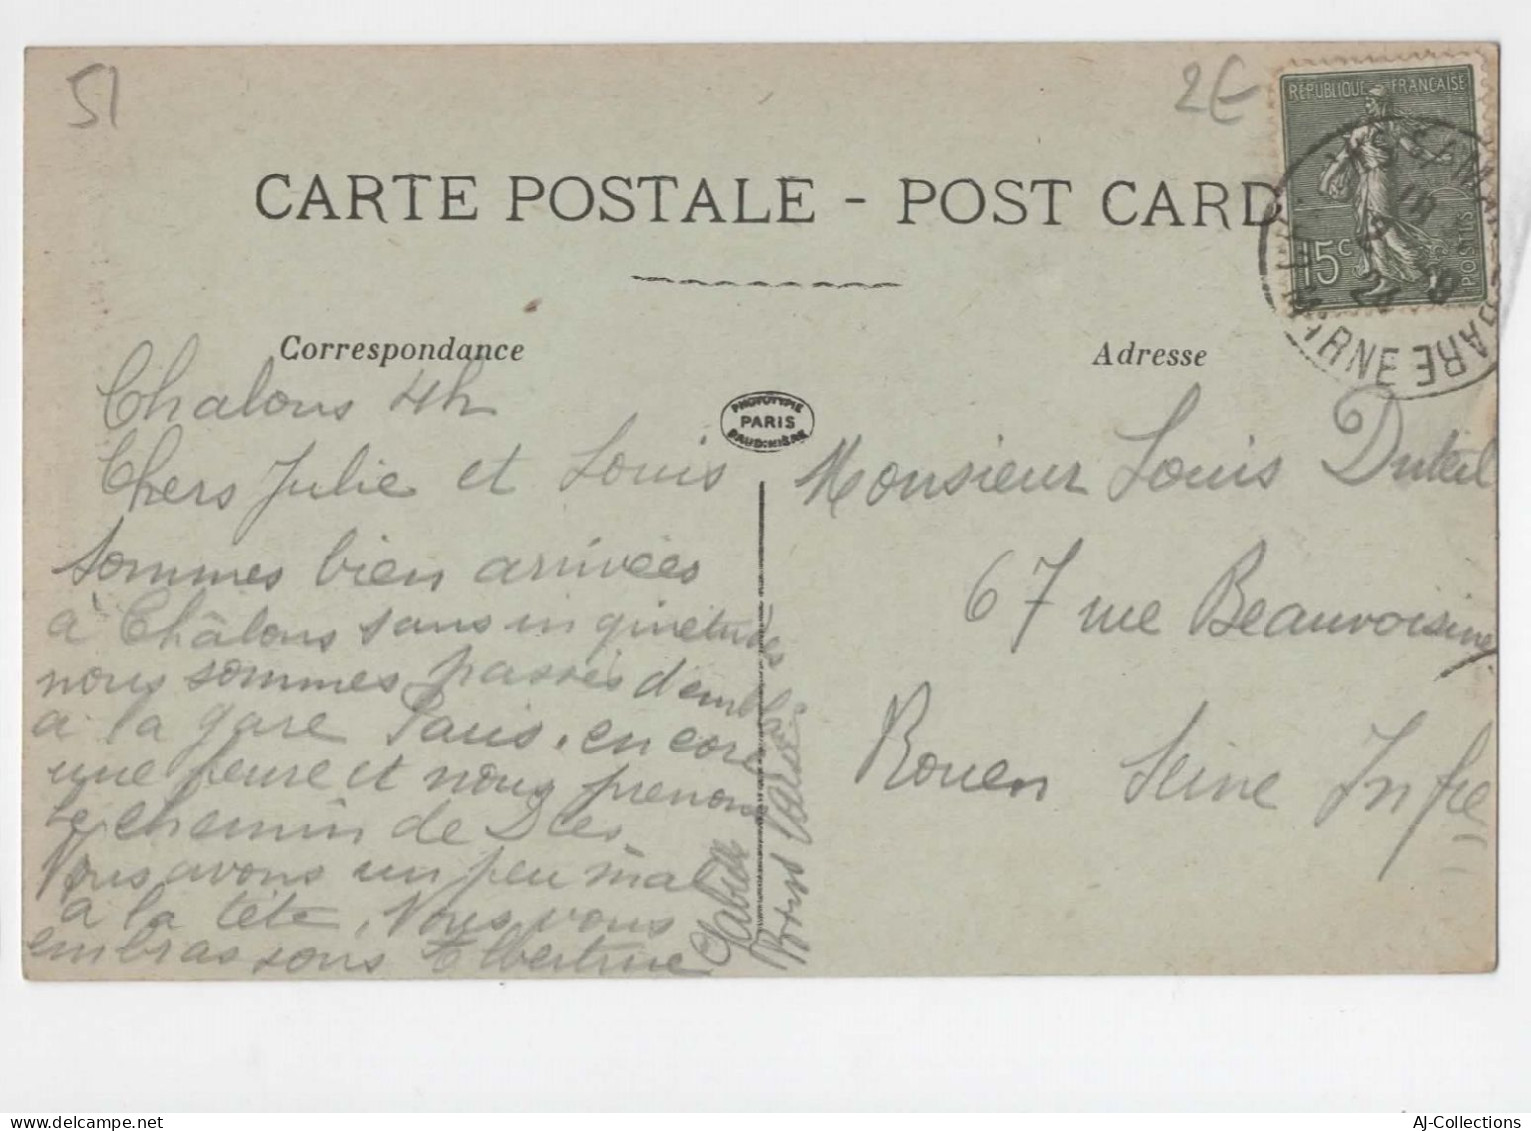 51
2€
RÉPUBLIQUE FRANÇAISE
15c POSTES
CARTE POSTALE - POST CARD
MARNE
GARE
Correspondance
Adresse
PHOTOTYPIE
PARIS
BAUDINIÈRE
Chalons 4h
Chers Julie et Louis
Sommes bien arrivées
à Châlons sans inquietudes
nous sommes passés d'emblé
a la gare Paris. encore
une heure et nous prenons
le chemin de
Nous avons un peu mal
a la tête, Nous vous
embrassons Albertine
Bons
Monsieur Louis Duteil
67 rue Beauvoisine
Rouen Seine Infre
AJ-Collections